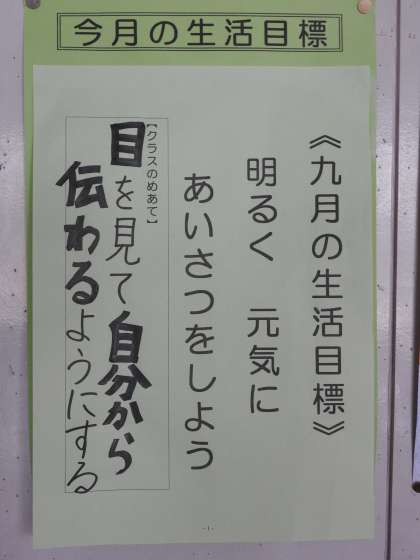 今月の生活目標
《九月の生活目標》
明るく　元気に
あいさつをしよう
【クラスのめあて】
目を見て自分から
伝わるようにする
-1-